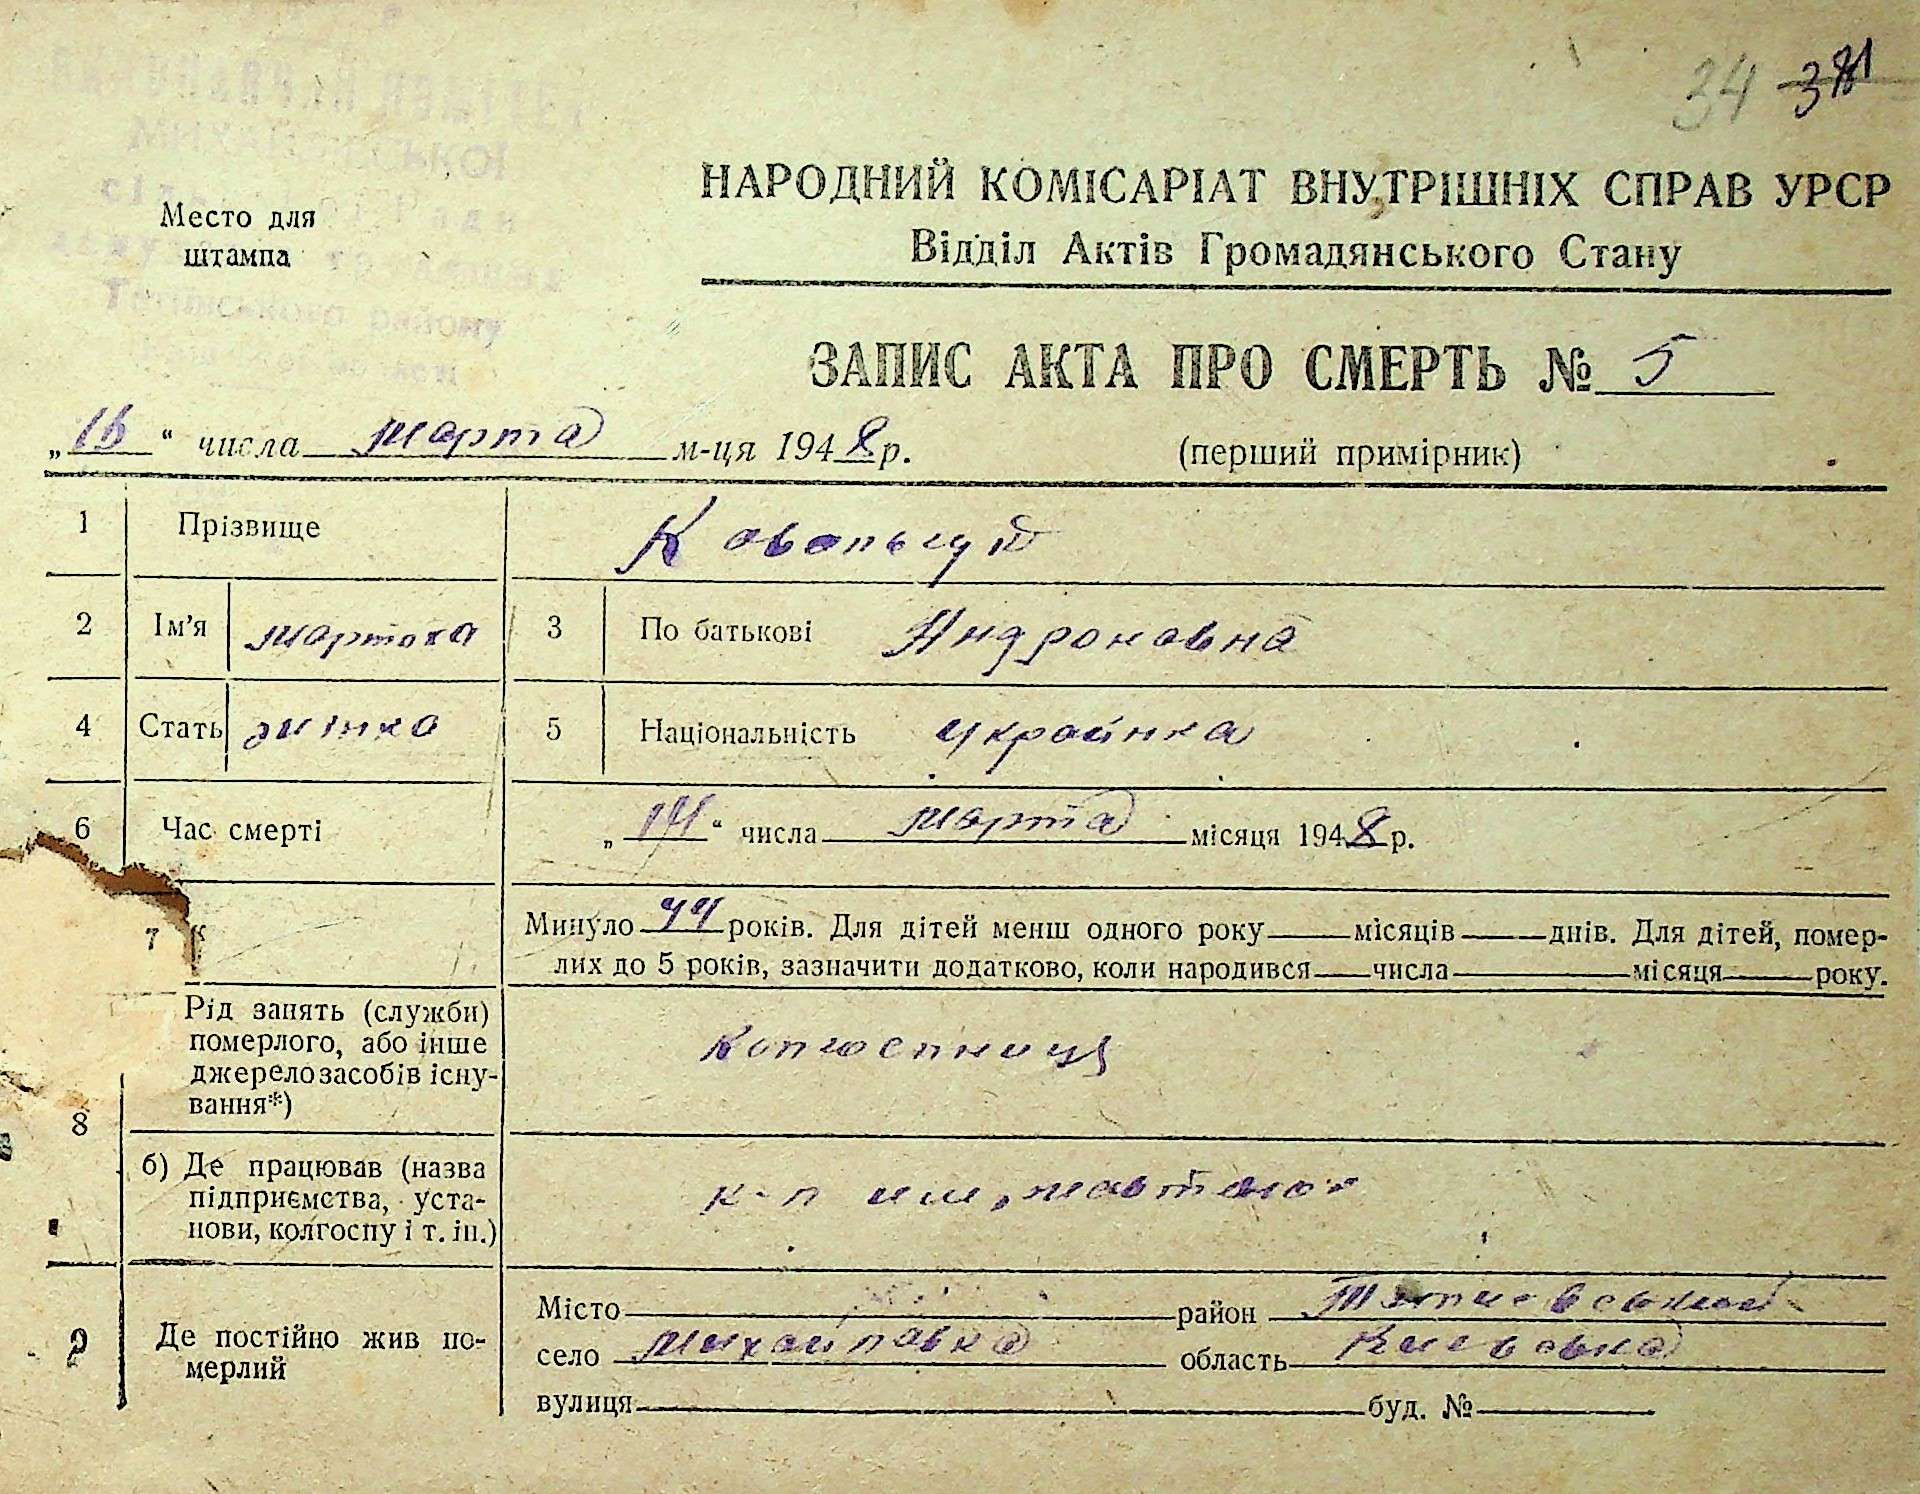 34 381
МИХАЙЛІВСЬКОЇ
району
Место для
штампа
НАРОДНИЙ КОМІСАРІАТ ВНУТРІШНІХ СПРАВ УРСР
Відділ Актів Громадянського Стану
ЗАПИС АКТА ПРО СМЕРТЬ № 5
„16“ числа марта м-ця 1948 р.
(перший примірник)
1 Прізвище Ковальчук
2 Ім’я 3 По батькові Андроновна
4 Стать жінка 5 Національність українка
6 Час смерті „14“ числа марта місяця 1948 р.
7 Минуло 44 років. Для дітей менш одного року — місяців — днів. Для дітей, помер-
лих до 5 років, зазначити додатково, коли народився — числа — місяця — року.
8 Рід занять (служби)
померлого, або інше
джерело засобів існу-
вання*)
Колгоспниця
б) Де працював (назва
підприємства, уста-
нови, колгоспу і т. ін.)
к-п им.
9 Де постійно жив по-
мерлий
Місто — район
село Михайловка область Киевска
вулиця — буд. №